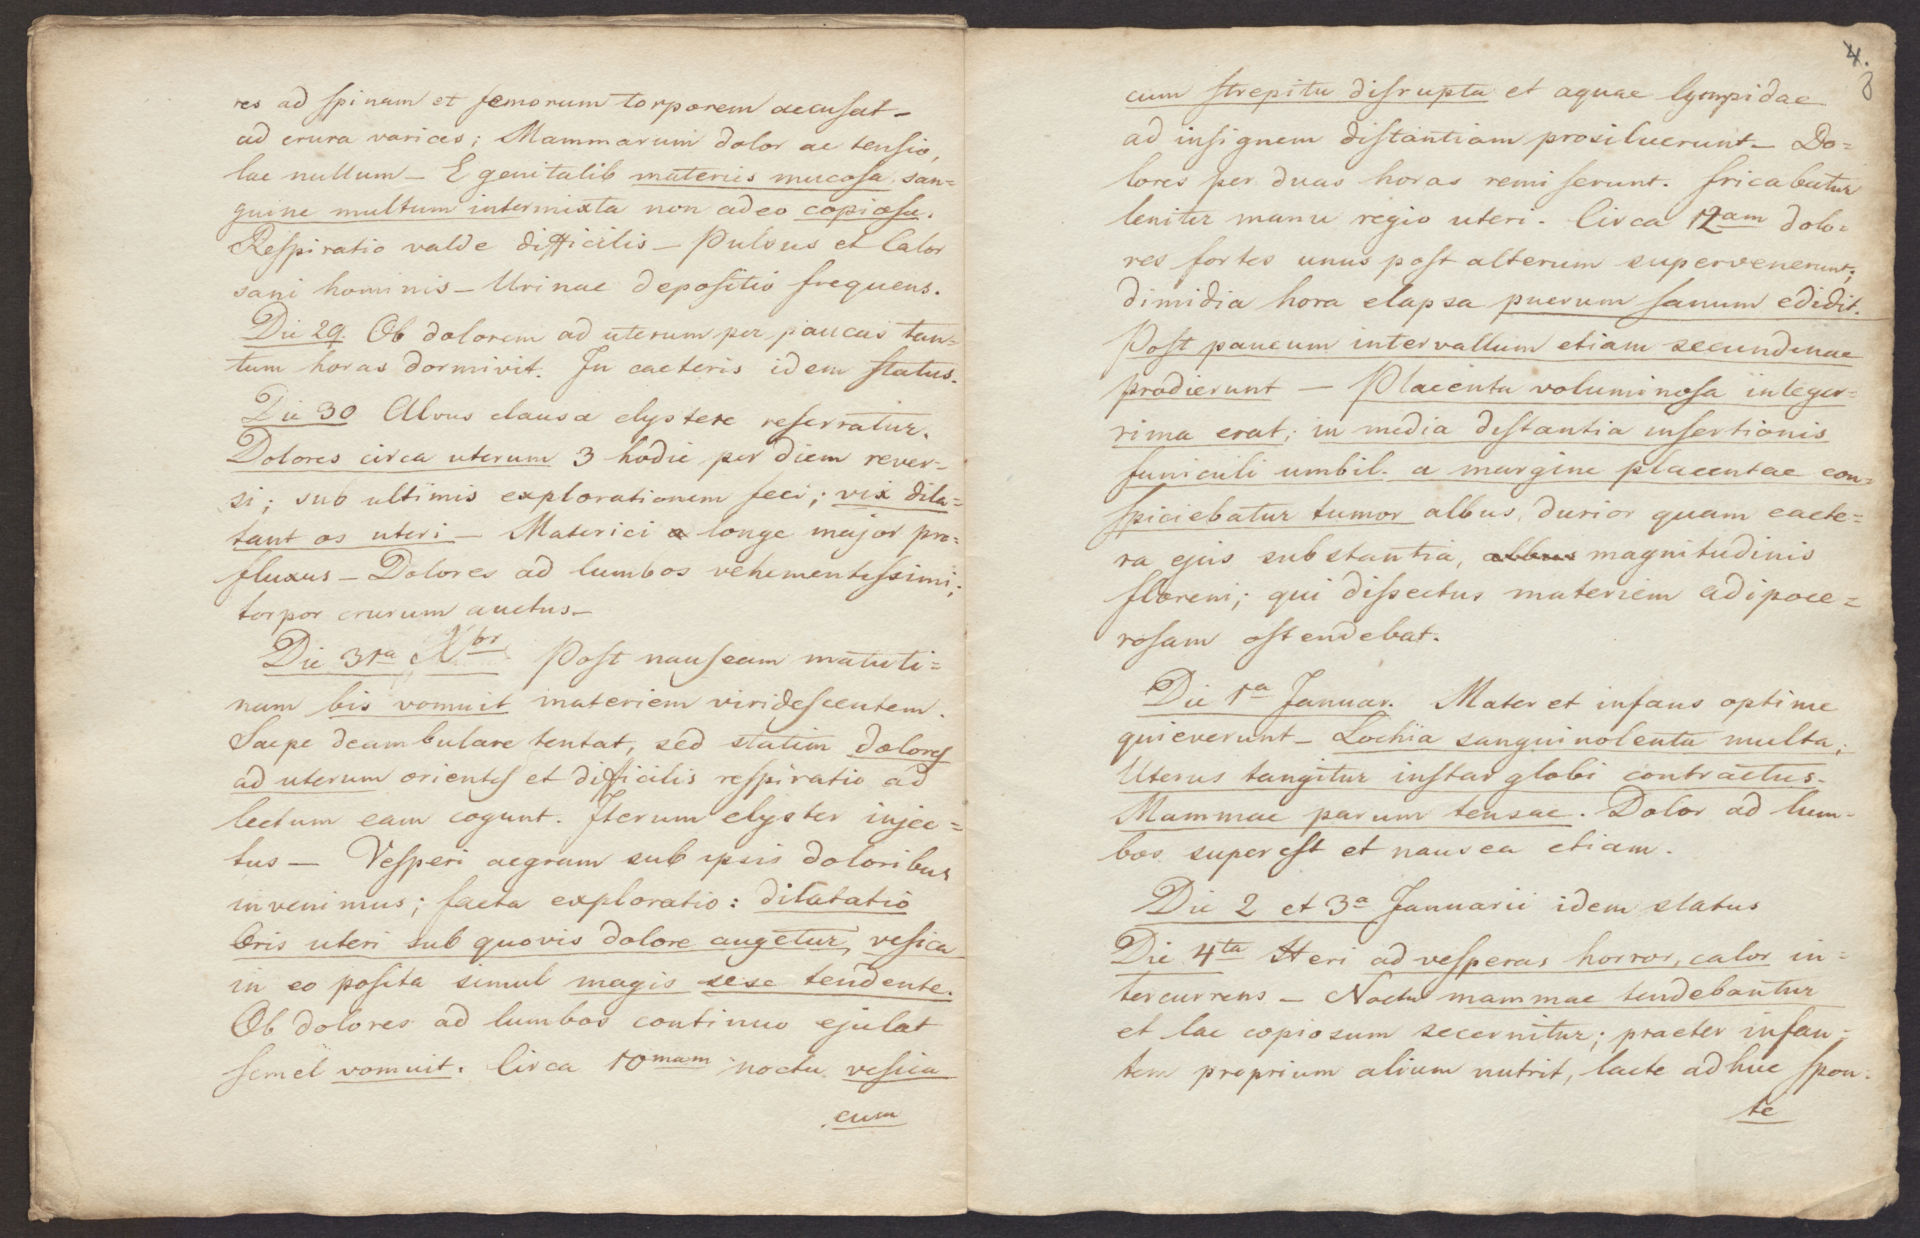 res ad spinam et femorum torporem accusat –
ad crura varices; Mammarum dolor ac tensio,
lac nullum – E genitalib materies mucosa san=
guine multum intermixta non adeo copiosa.
Respiratio valde difficilis – Pulsus et Calor
sani hominis – Urinae depositio frequens.
Die 29. Ob dolorem ad uterum per paucas tan=
tum horas dormivit. In caeteris idem status.
Die 30 Alvus clausa clystere reserratur.
Dolores circa uterum 3 hodie per diem rever=
si; sub ultimis explorationem feci; vix dila=
tant os uteri – Materiei a longe major pro=
fluxus – Dolores ad lumbos vehementissimi;
torpor crurum auctus –
Die 31a Xbr Post nauseam matuti=
nam bis vomuit materiem viridescentem.
Saepe deambulare tentat, sed statim dolores
ad uterum orientes et difficilis respiratio ad
lectum eam cogunt. Iterum clyster injec=
tus – Vesperi aegram sub ipsis doloribus
invenimus; facta exploratio: dilatatio
Oris uteri sub quovis dolore augetur, vesica
in eo posita simul magis sese tendente.
Ob dolores ad lumbos continuo ejulat
semel vomuit. Circa 10mam noctu vesica
cum
4.
cum strepitu disrupta et aquae lympidae
ad insignem distantiam prosiluerunt – Do=
lores per duas horas remiserunt. fricabatur
leniter manu regio uteri. Circa 12am dolo=
res fortes unus post alterum supervenerunt;
dimidia hora elapsa puerum sanum edidit.
Post paucum intervallum etiam secundinae
prodierunt – Placenta voluminosa integer=
rima erat; in media distantia insertionis
funiculi umbil. a margine placentae con=
spiciebatur tumor albus, durior quam caete=
ra ejus substantia, albus magnitudinis
floreni; qui dissectus materiem adipoce=
rosam ostendebat.
Die 1a Januar. Mater et infans optime
quieverunt – Lochia sanguinolenta multa;
Uterus tangitur instar globi contractus.
Mammae parum tensae. Dolor ad lum=
bos superest et nausea etiam.
Die 2 et 3a Januarii idem status
Die 4ta Heri ad vesperas horror, calor in=
tercurrens – Noctu mammae tendebantur
et lac copiosum secernitur; praeter infan=
tem proprium alium nutrit, lacte adhuc spon=
te